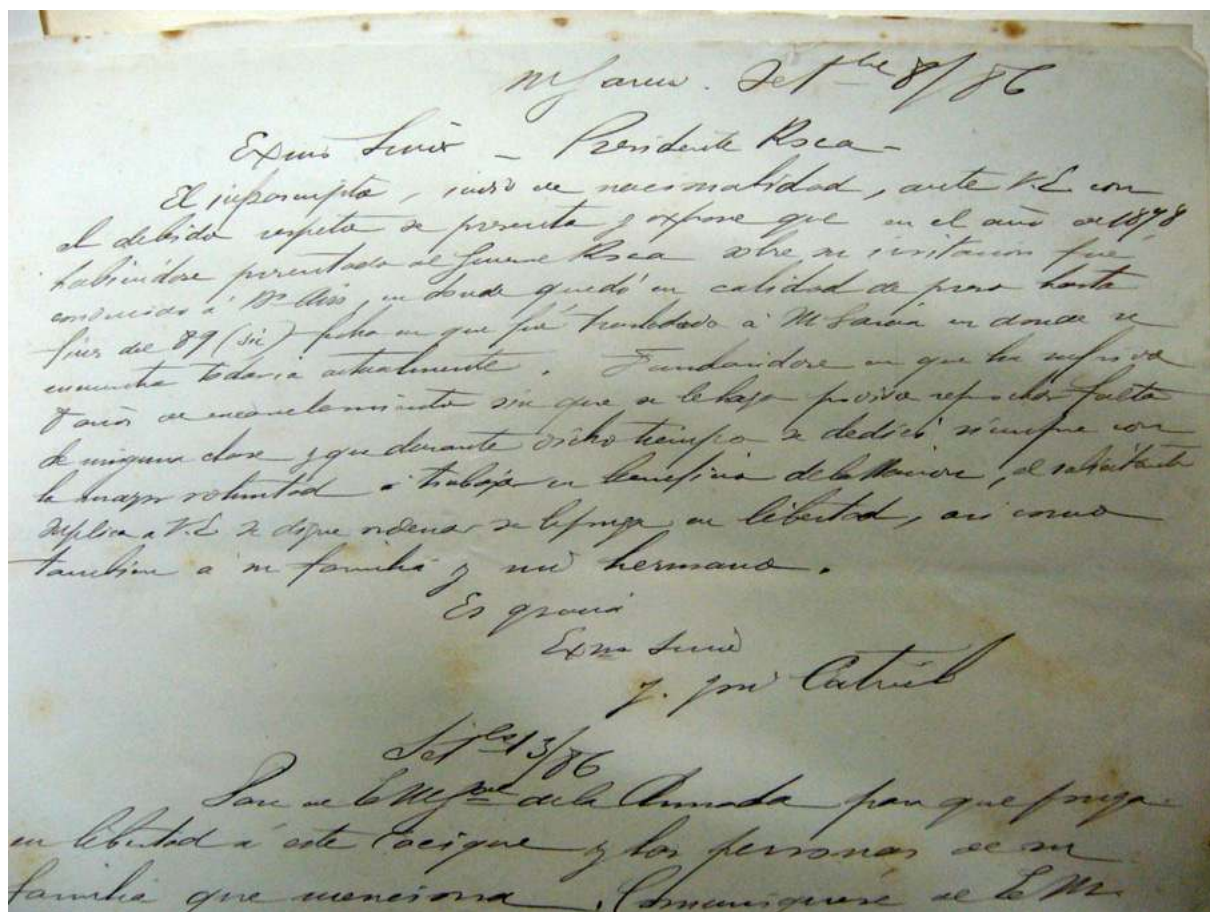 M García. Setbre 8/86
Exmo Señor - Presidente Roca -
El infrascripto, indio de nacionalidad, ante V.E. con
el debido respeto se presenta y expone que en el año de 1878
habiéndose presentado al General Roca sobre su invitacion fué
conducido á Bs Aires, en donde quedó en calidad de preso hasta
fines del 89 (sic) fecha en que fué trasladado á M García en donde se
encuentra todavia actualmente. Fundandose en que ha sufrido
8 años de encarcelamiento sin que se le haya podido reprochar falta
de ninguna clase y que durante dicho tiempo se dedicó siempre con
la mayor voluntad á trabajar en beneficio de la Nacion, el solicitante
suplica a V.E. se digne ordenar se le ponga en libertad, asi como
tambien a su familia y su hermano.
Es gracia
Exmo Señor
J. José Catriel
Setbre 13/86
Pase al de la Armada para que ponga
en libertad á este Cacique y las personas de su
familia que menciona. Comuniquese al